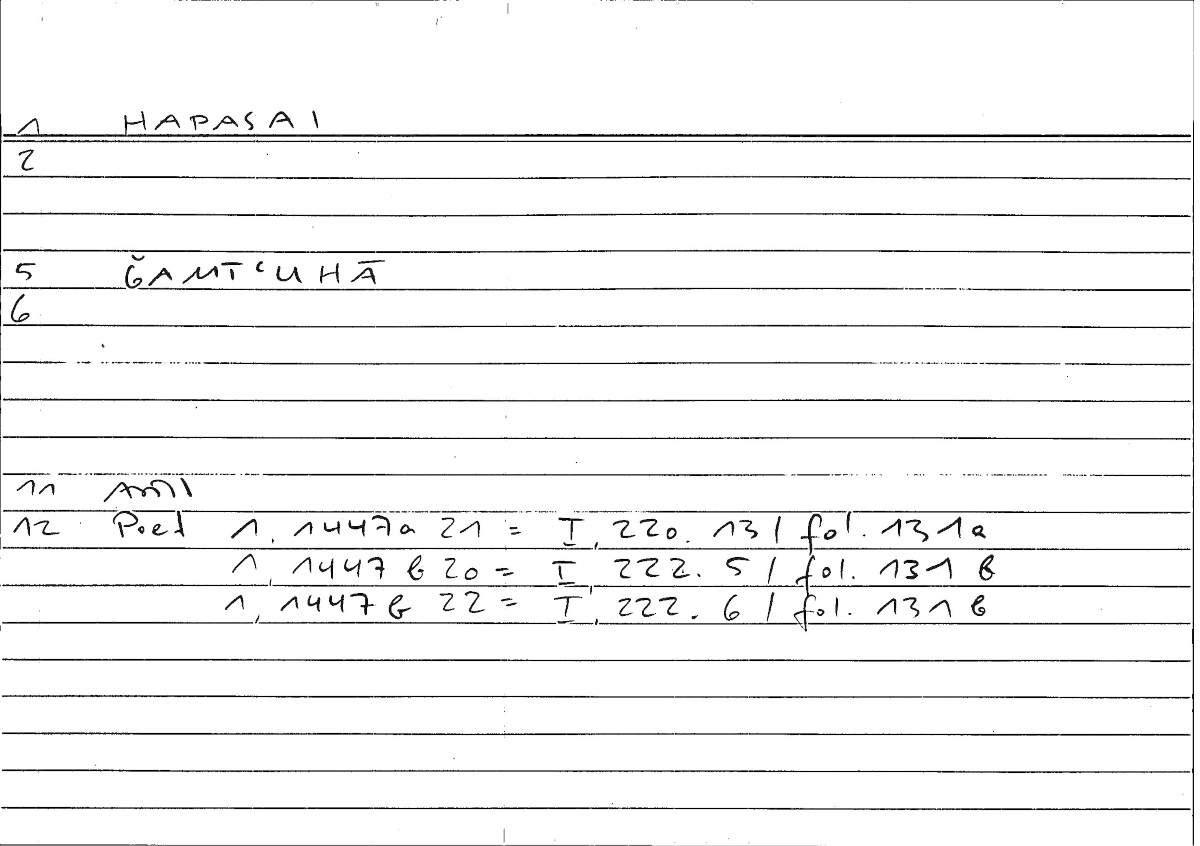 1 HAPASAI
2
5 ǦAMĪʿUHĀ
6
11
12 Poet 1, 1447a 21 = I, 220. 13 / fol. 131a
1, 1447 b 20 = I, 222. 5 / fol. 131 b
1, 1447 b 22 = I, 222. 6 / fol. 131 b